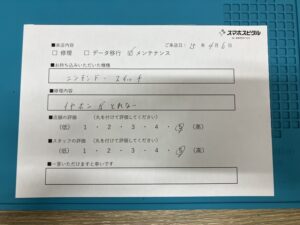 スマホスピタル
■来店内容
ご来店日: 15 年 4月6日
□ 修理 □ データ移行 ☑ メンテナンス
■お持込みいただいた機種
ニンテンドースイッチ
■修理内容
イヤホンがとれない
■店舗の評価 (丸を付けて評価してください)
(低) 1 ・ 2 ・ 3 ・ 4 ・ 5 (高)
■スタッフの評価 (丸を付けて評価してください)
(低) 1 ・ 2 ・ 3 ・ 4 ・ 5 (高)
■一言いただけますと幸いです